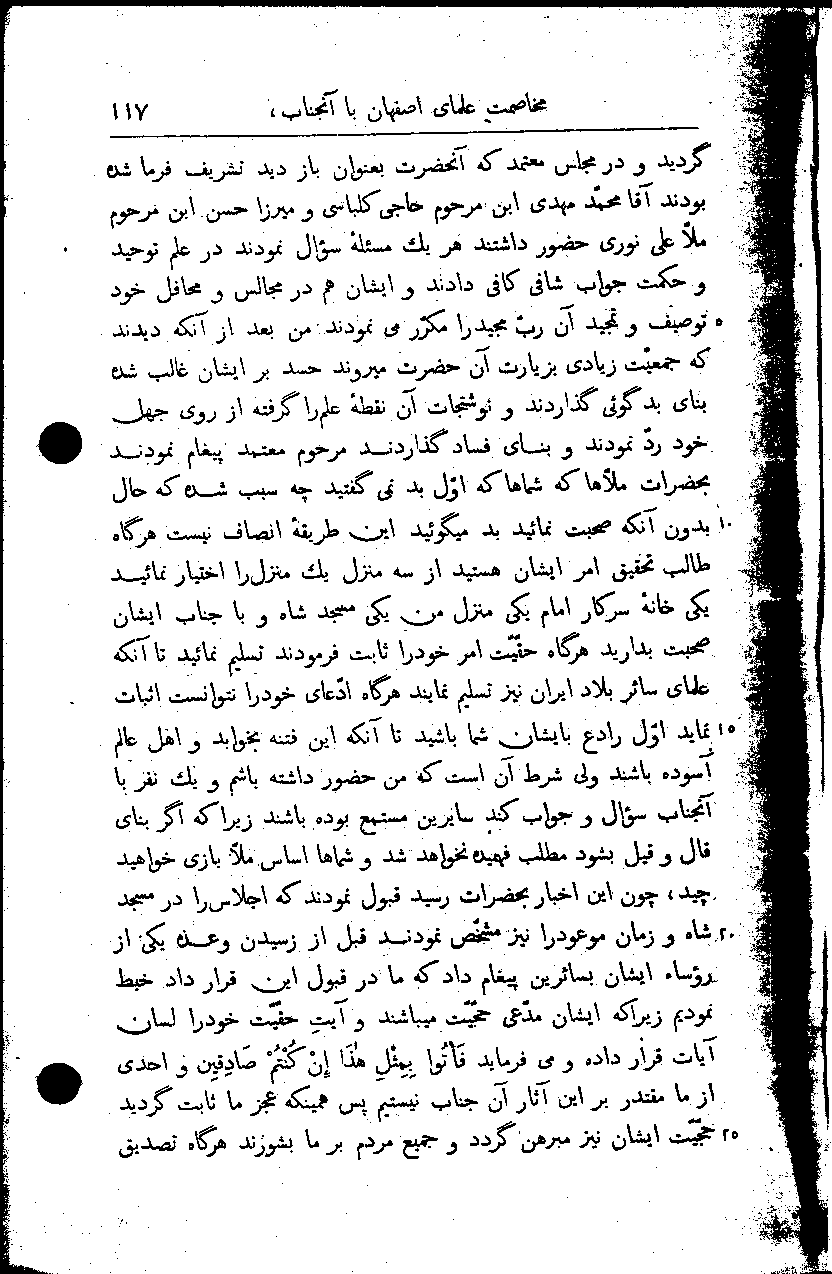 مخاصمت علمای اصفهان با آنجناب، ۱۱۷
گردید و در مجلس معتمد که آنحضرت بعنوان باز دید تشریف فرما شده
بودند آقا محمّد مهدی ابن مرحوم حاجی کلباسی و میرزا حسن ابن مرحوم
ملّا علی نوری حضور داشتند هر یك مسئلهٔ سؤال نمودند در علم توحید
و حکمت جواب شافی کافی دادند و ایشان هم در مجالس و محافل خود
۵ توصیف و تمجید آن ربّ مجیدرا مکرّر می نمودند من بعد از آنکه دیدند
که جمعیّت زیادی بزیارت آن حضرت میروند حسد بر ایشان غالب شده
بنای بد گوئی گذاردند و نوشتجات آن نقطهٔ علم‌را گرفته از روی جهل
خود ردّ نمودند و بنای فساد گذاردند مرحوم معتمد پیغام نمودند
بحضرات ملّاها که شماها که اوّل بد نمی گفتید چه سبب شده که حال
۱۰ بدون آنکه صحبت نمائید بد میگوئید این طریقهٔ انصاف نیست هرگاه
طالب تحقیق امر ایشان هستید از سه منزل یك منزل‌را اختیار نمائید
یکی خانهٔ سرکار امام یکی منزل من یکی مسجد شاه و با جناب ایشان
صحبت بدارید هرگاه حقیّت امر خودرا ثابت فرمودند تسلیم نمائید تا آنکه
علمای سائر بلاد ایران نیز تسلیم نمایند هرگاه ادّعای خودرا نتوانست اثبات
۱۵ نماید اوّل رادع بایشان شما باشید تا آنکه این فتنه بخوابد و اهل عالم
آسوده باشند ولی شرط آن است که من حضور داشته باشم و یك نفر با
آنجناب سؤال و جواب کند سایرین مستمع بوده باشند زیرا که اگر بنای
قال و قیل بشود مطلب فهمیده نخواهد شد و شماها اساس ملّا بازی خواهید
چید، چون این اخبار بحضرات رسید قبول نمودند که اجلاس‌را در مسجد
۲۰ شاه و زمان موعودرا نیز مشخّص نمودند قبل از رسیدن وعده یکی از
رؤساء ایشان بسائرین پیغام داد که ما در قبول این قرار داد خبط
نمودیم زیراکه ایشان مدّعی حجّیّت میباشند و آیتِ حقیّت خودرا لسان
آیات قرار داده و می فرماید فَأْتُوا بِمِثْلِ هٰذَا إِنْ كُنْتُمْ صَادِقِین و احدی
از ما مقتدر بر این آثار آن جناب نیستیم پس همینکه عجز ما ثابت گردید
۲۵ حجّیّت ایشان نیز مبرهن گردد و جمیع مردم بر ما بشورند هرگاه تصدیق